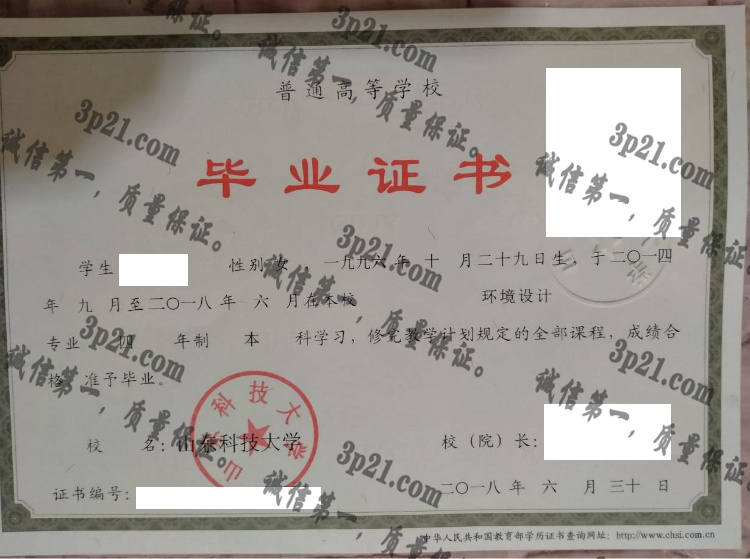 3p21.com
诚信第一，质量保证。
普通高等学校
毕业证书
学生 性别 女 一九九六年 十 月二十九日生，于二〇一四
年 九 月至二〇一八年 六 月在本校 环境设计
专业 四 年制 本 科学习，修完教学计划规定的全部课程，成绩合
格，准予毕业。
山东科技大学
校 名：山东科技大学 校（院）长：
证书编号： 二〇一八 年 六 月 三十 日
中华人民共和国教育部学历证书查询网址：http://www.chsi.com.cn
3p21.com
诚信第一，质量保证。
3p21.com
诚信第一，质量保证。
3p21.com
诚信第一，质量保证。
3p21.com
诚信第一，质量保证。
3p21.com
诚信第一，质量保证。